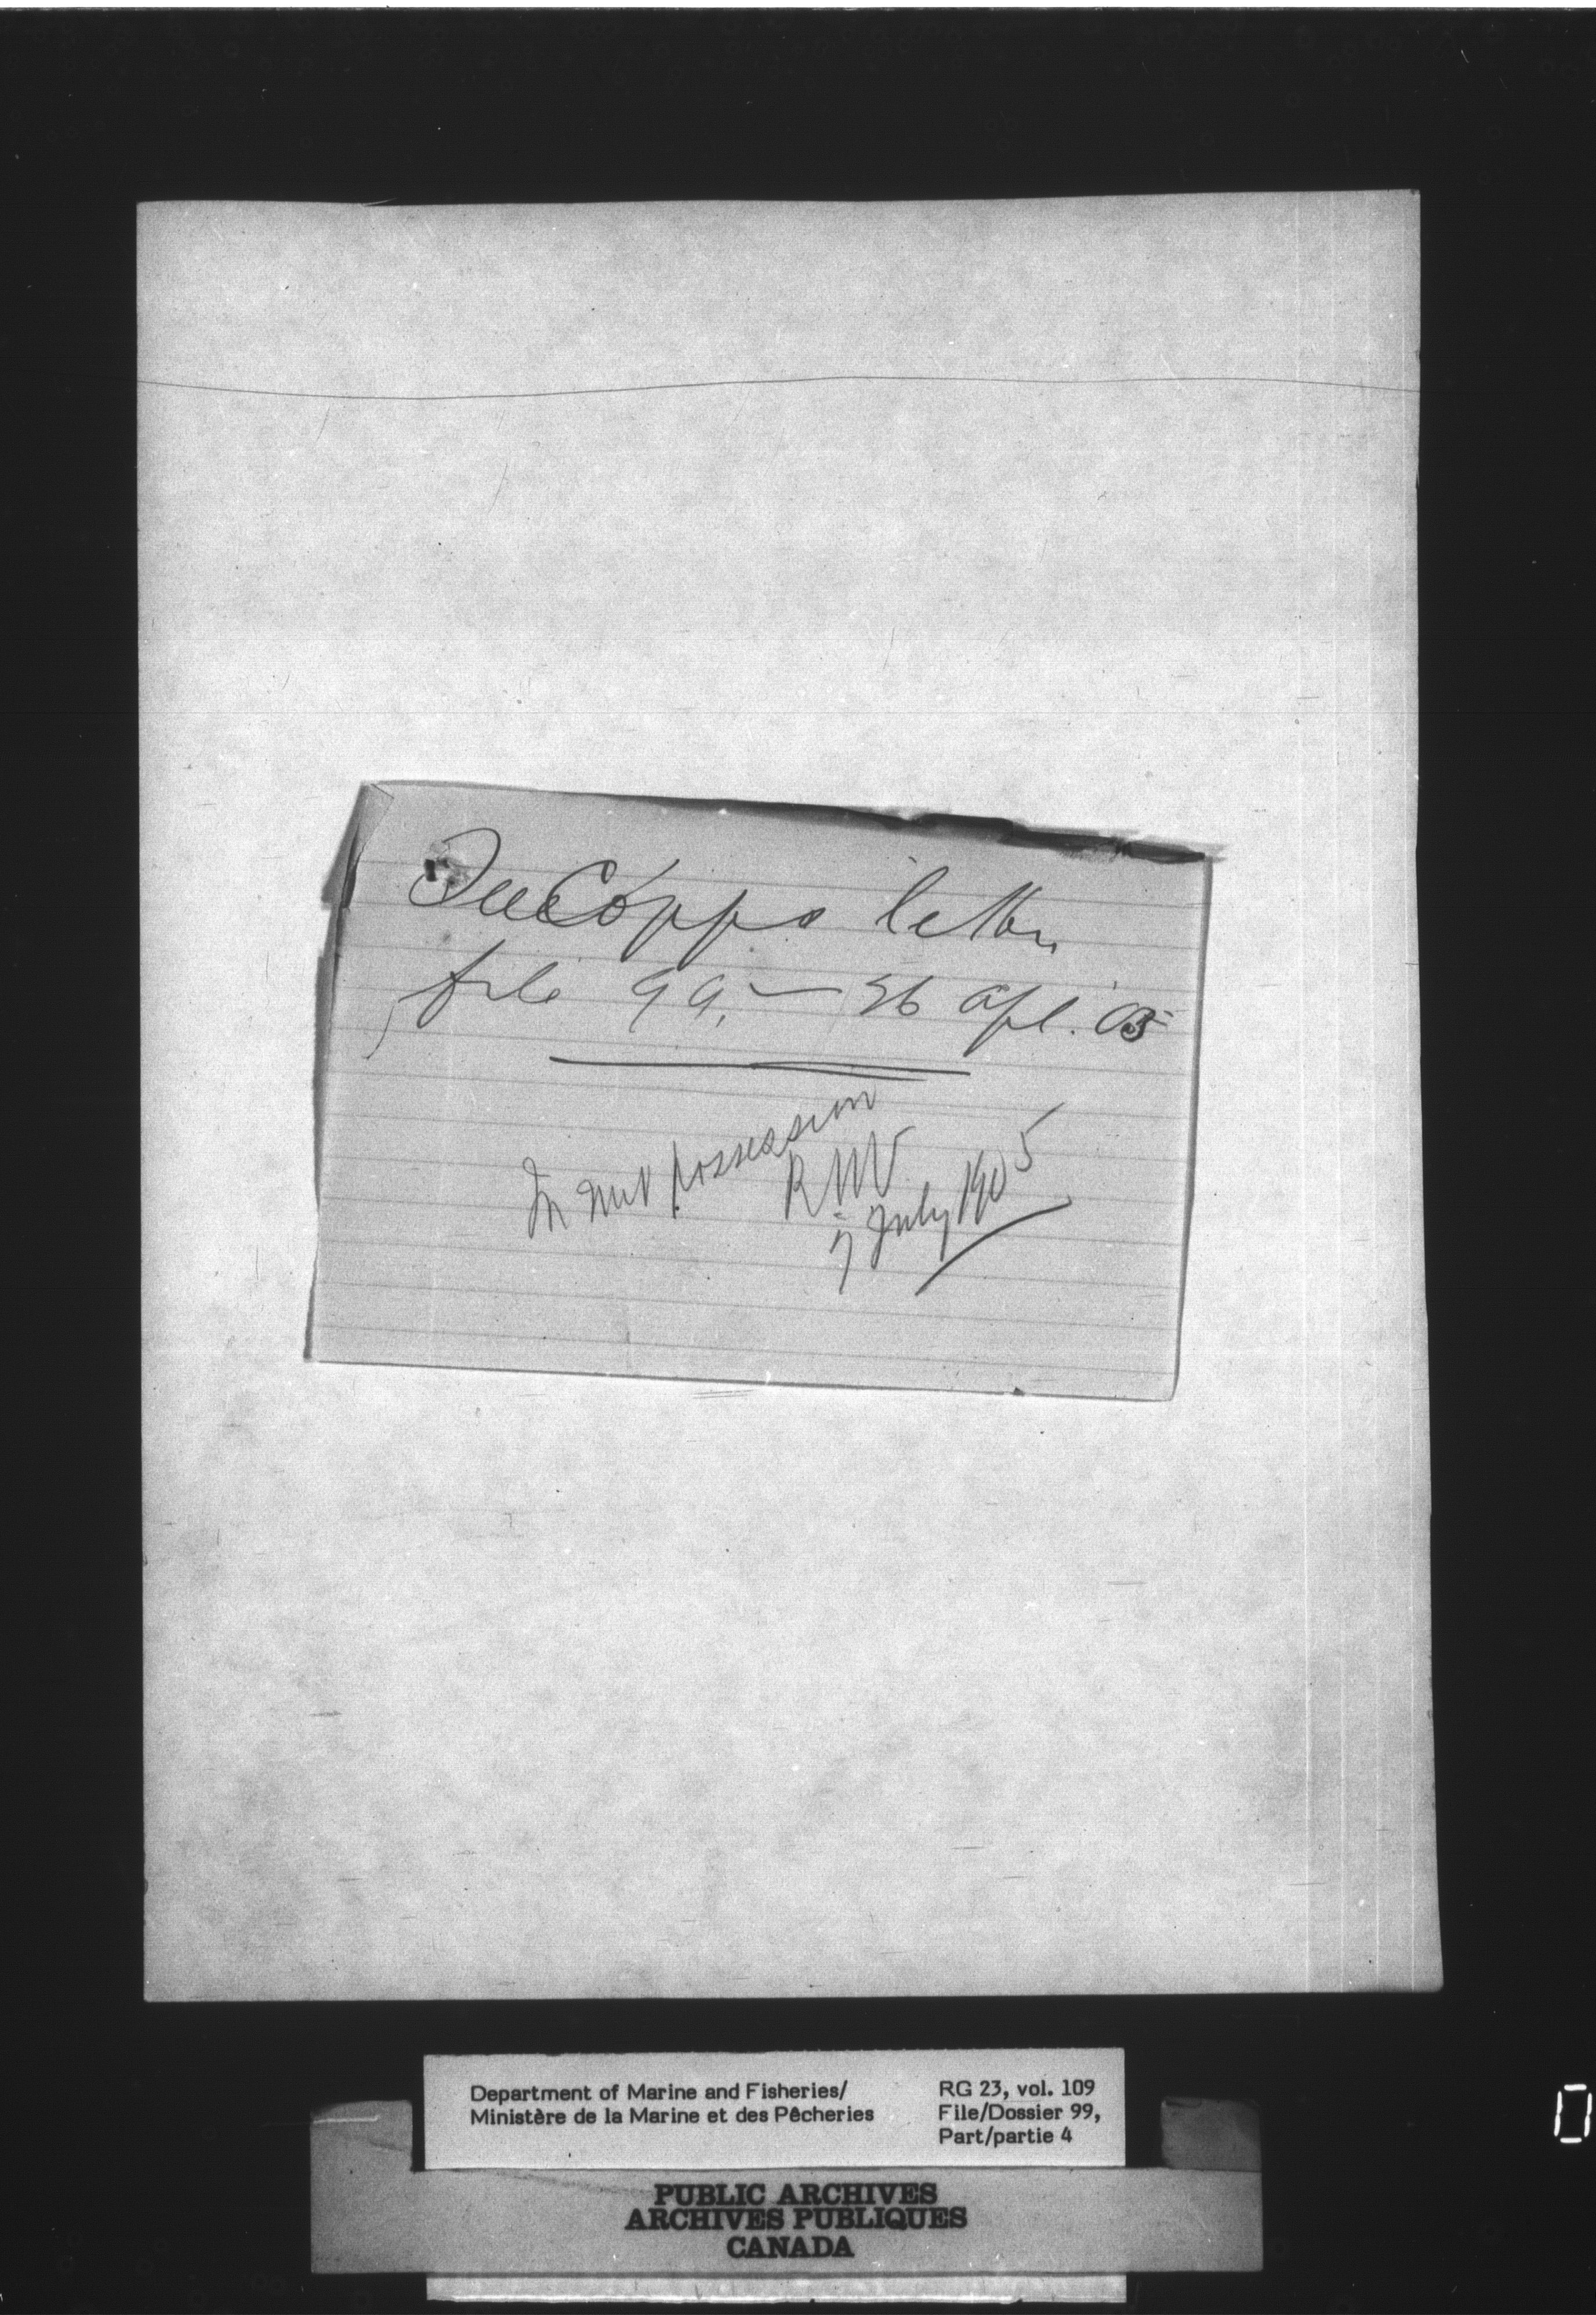 See Copps letter
file 99, — 26 Apl. '05
In my possession
RNV
7 July 1905
Department of Marine and Fisheries/
Ministère de la Marine et des Pêcheries
RG 23, vol. 109
File/Dossier 99,
Part/partie 4
PUBLIC ARCHIVES
ARCHIVES PUBLIQUES
CANADA
0